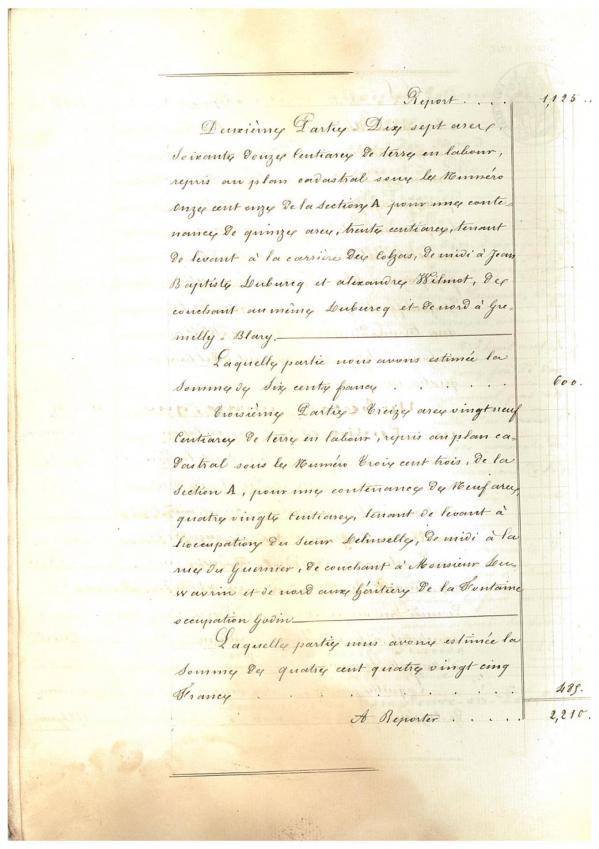 Report . . . . 1,125 ..
Deuxième Partie Dix sept ares,
Soixante douze Centiares de terre en labour,
repris au plan cadastral sous le Numéro
onze cent onze de la section A pour une conte-
nance de quinze ares, trente centiares, tenant
de levant à la carrière des Colzas, de midi à Jean
Baptiste Duburcq et alexandre Wilmot, de
couchant au même Duburcq et de nord à Gre-
milly-Blary.
Laquelle partie nous avons estimée la
Somme de Six cents francs . . . . . . 600.
Troisième Partie Treize ares vingt neuf
Centiares de terre en labour, repris au plan ca-
dastral sous le Numéro Trois cent trois, de la
Section A, pour une contenance de Neuf ares,
quatre vingts Centiares, tenant de levant à
l'occupation du sieur Delinselle, de midi à la
rue du Guernier, de couchant à Monsieur Du-
wavrin et de nord aux héritiers De la Fontaine
occupation Godin
Laquelle partie nous avons estimée la
Somme de quatre cent quatre vingt cinq
Francs . . . . . . . . . . . . 485.
A Reporter . . . . . 2,210.